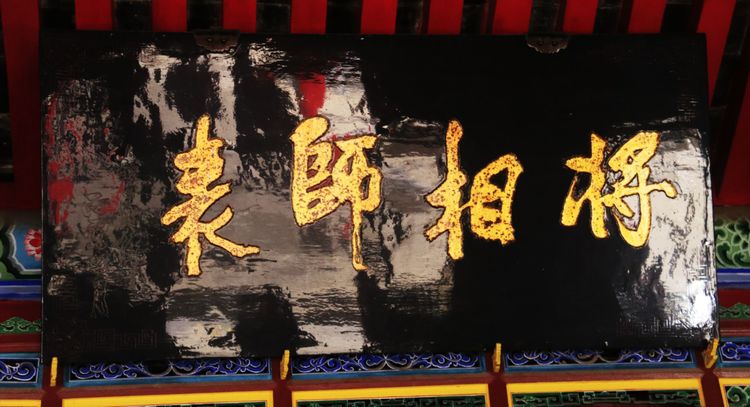 将相師表